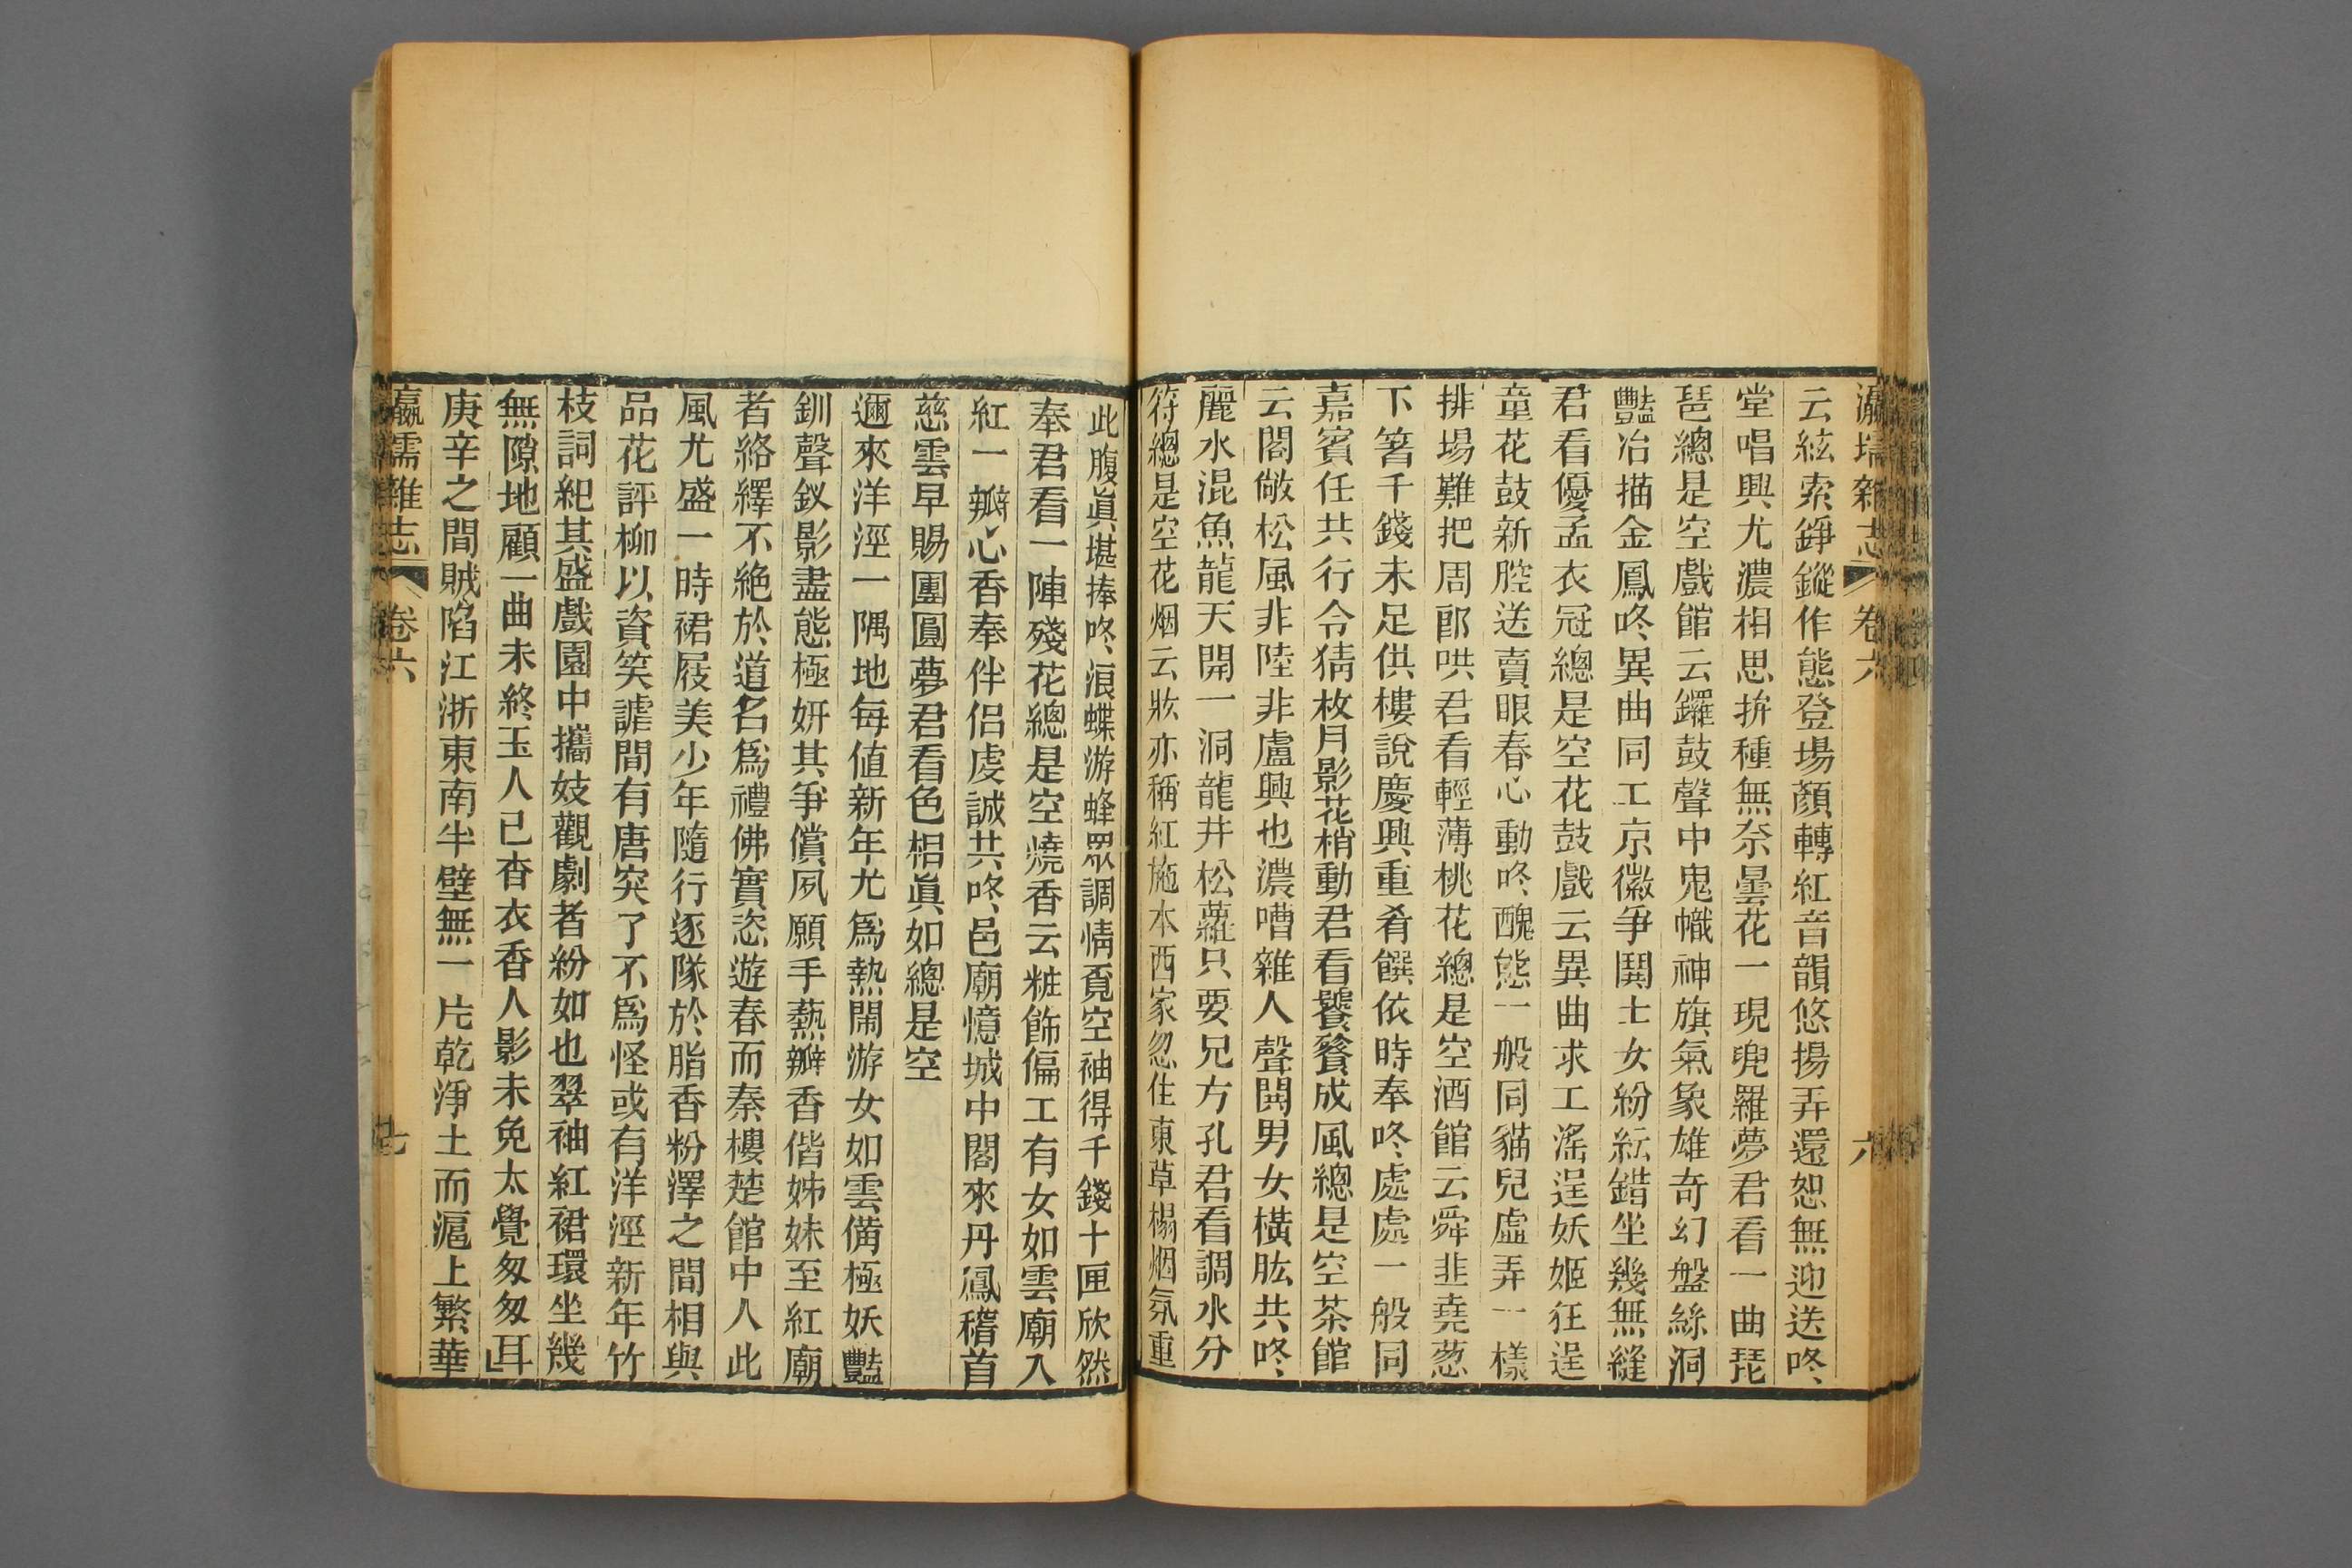 瀛壖雜志 卷六 六
云絃索錚鏦作態登場顏轉紅音韻悠揚弄還恕無迎送咚
堂唱興尤濃相思拚種無奈曇花一現兜羅夢君看一曲琵
琶總是空戲館云鑼鼓聲中鬼幟神旗氣象雄奇幻盤絲洞
豔冶描金鳳咚異曲同工京徽爭鬨士女紛紜錯坐幾無縫
君看優孟衣冠總是空花鼓戲云異曲求工滛逞妖姬狂逞
童花鼓新腔送賣眼春心動咚醜態一般同貓兒虛弄一樣
排場難把周郎哄君看輕薄桃花總是空酒館云舜韭堯葱
下箸千錢未足供樓說慶興重肴饌依時奉咚處處一般同
嘉賓任共行令猜枚月影花梢動君看饕餮成風總是空茶館
云閣敞松風非陸非盧興也濃嘈雜人聲鬨男女橫肱共咚
麗水混魚龍天開一洞龍井松蘿只要兄方孔君看調水分
符總是空花烟云妝亦稱紅施本西家忽住東草榻烟氛重
此腹眞堪捧咚浪蝶游蜂眾調情覓空袖得千錢十匣欣然
奉君看一陣殘花總是空燒香云粧飾偏工有女如雲廟入
紅一瓣心香奉伴侶虔誠共咚邑廟憶城中閣來丹鳳稽首
慈雲早賜團圓夢君看色相眞如總是空
邇來洋涇一隅地每値新年尤爲熱鬧游女如雲備極妖豔
釧聲釵影盡態極妍其爭償夙願手爇瓣香偕姊妹至紅廟
者絡繹不絕於道名爲禮佛實恣遊春而秦樓楚館中人此
風尤盛一時裙屐美少年隨行逐隊於脂香粉澤之間相與
品花評柳以資笑謔間有唐突了不爲怪或有洋涇新年竹
枝詞紀其盛戲園中攜妓觀劇者紛如也翠袖紅裙環坐幾
無隙地顧一曲未終玉人已杳衣香人影未免太覺匆匆耳
庚辛之間賊陷江浙東南半壁無一片乾淨土而滬上繁華
瀛壖雜志 卷六 七